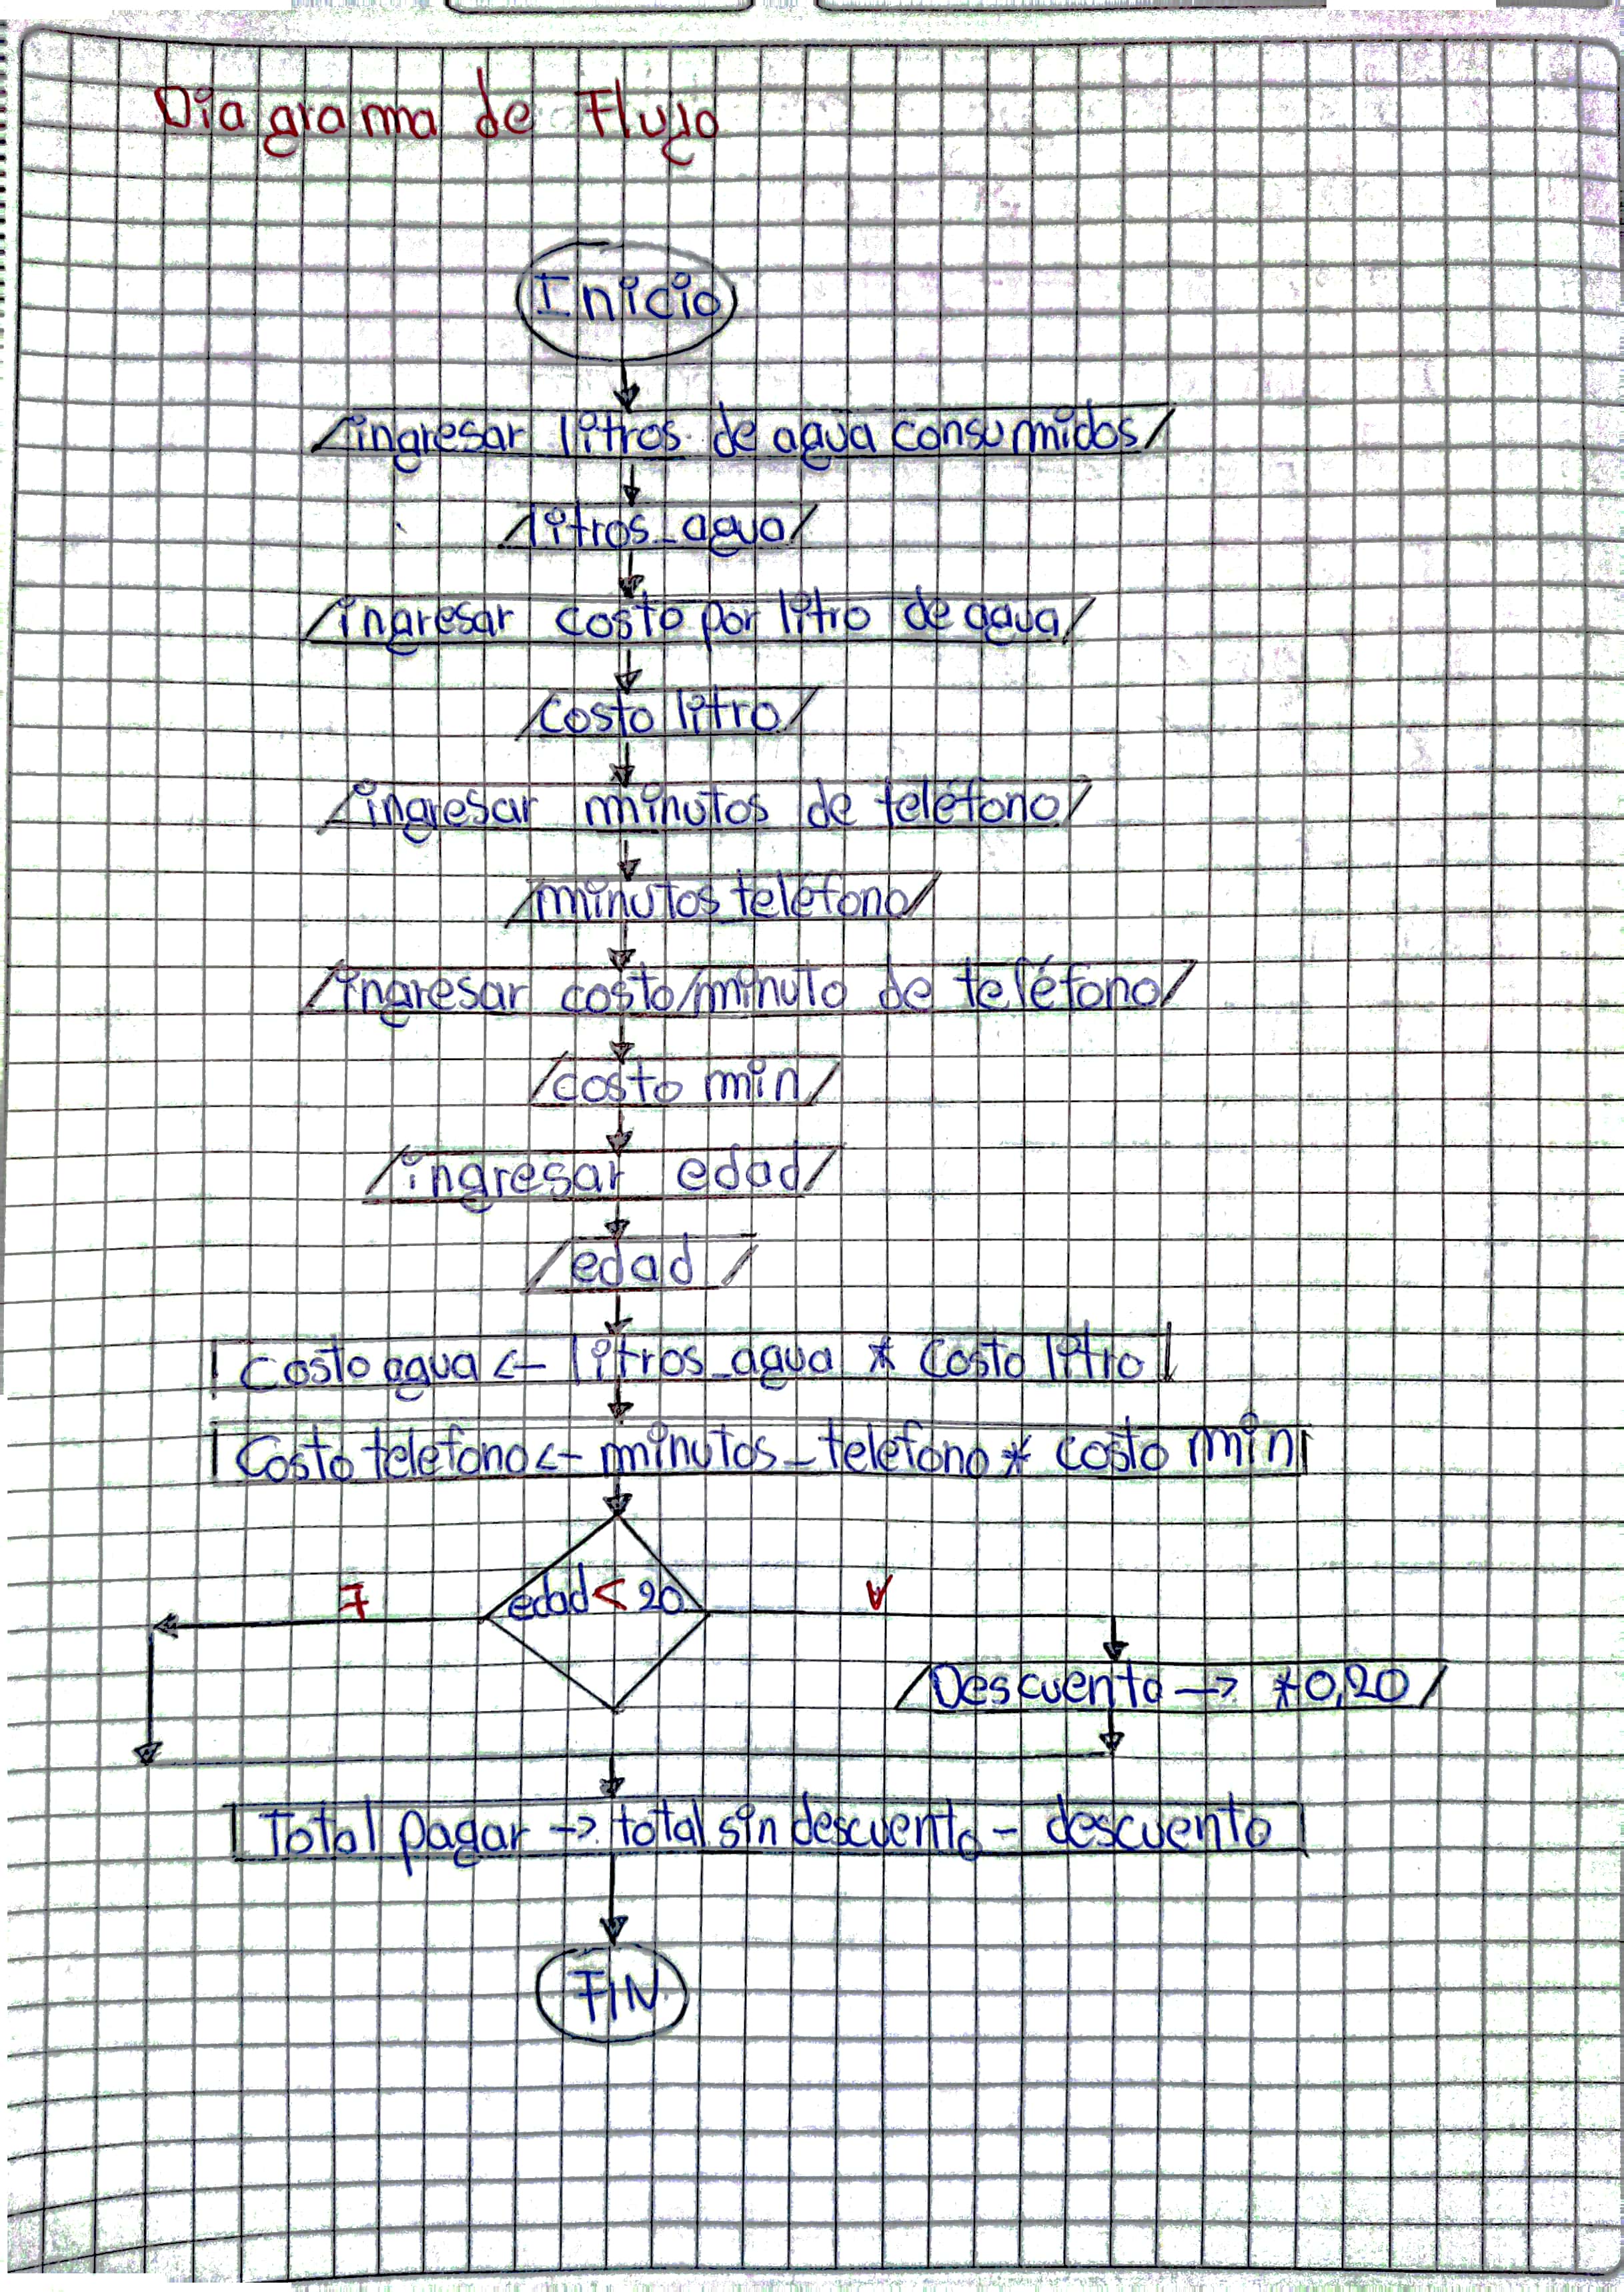 Diagrama de Flujo
Inicio
ingresar litros de agua consumidos
litros_agua
ingresar costo por litro de agua
costo litro
ingresar minutos de teléfono
minutos teléfono
ingresar costo/minuto de teléfono
costo min
ingresar edad
edad
Costo agua <- litros_agua * Costo litro
Costo telefono <- minutos_telefono * costo min
F edad < 20 V
Descuento -> *0,20
Total pagar -> total sin descuento - descuento
FIN